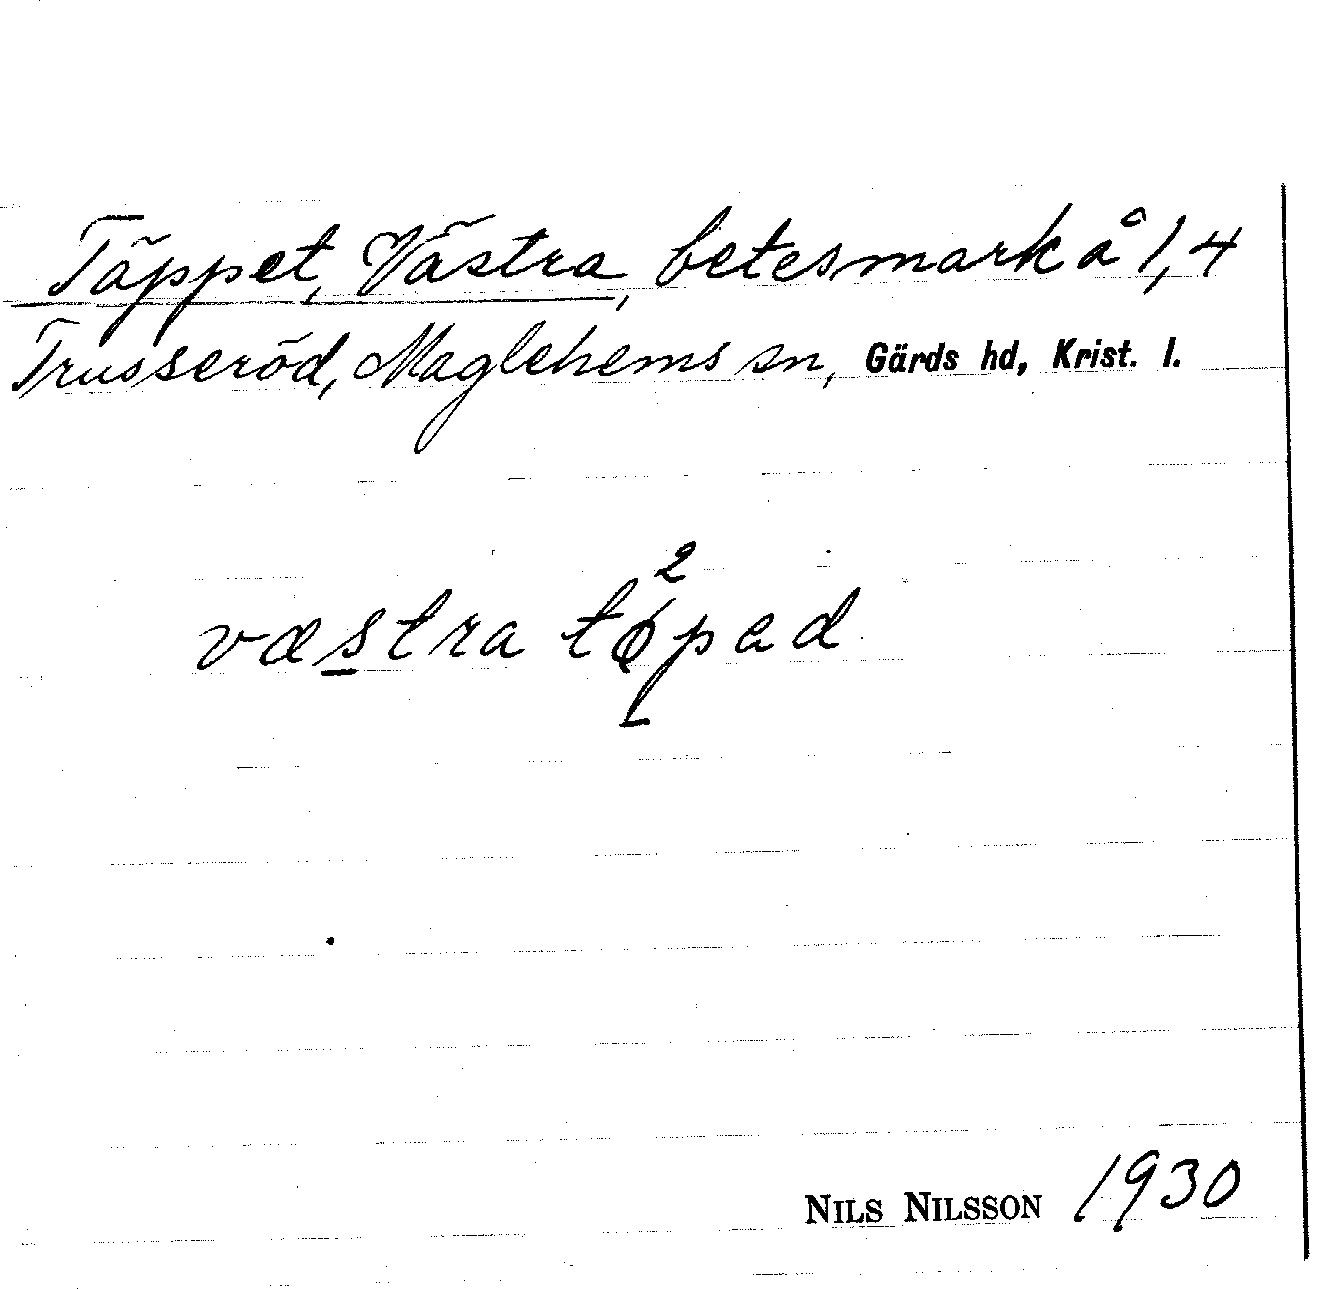 Täppet, Västra, betesmark å 1,4
Trusseröd, Maglehems sn, Gärds hd, Krist. l.
væstra tø²pad
NILS NILSSON 1930